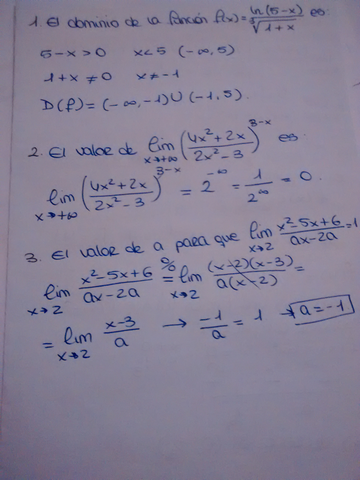 1. El dominio de la función f(x) = ln(5-x) / ∛(1+x) es:
5-x>0 x<5 (-∞, 5)
1+x ≠ 0 x ≠ -1
D(f) = (-∞, -1) ∪ (-1, 5)
2. El valor de lim x→+∞ ((4x²+2x)/(2x²-3))^(3-x) es
lim x→+∞ ((4x²+2x)/(2x²-3))^(3-x) = 2^(-∞) = 1/2^∞ = 0.
3. El valor de a para que lim x→2 (x²-5x+6)/(ax-2a) = 1
lim x→2 (x²-5x+6)/(ax-2a) =^(0/0) lim x→2 (x-2)(x-3)/a(x-2) =
= lim x→2 (x-3)/a → -1/a = 1 → a = -1